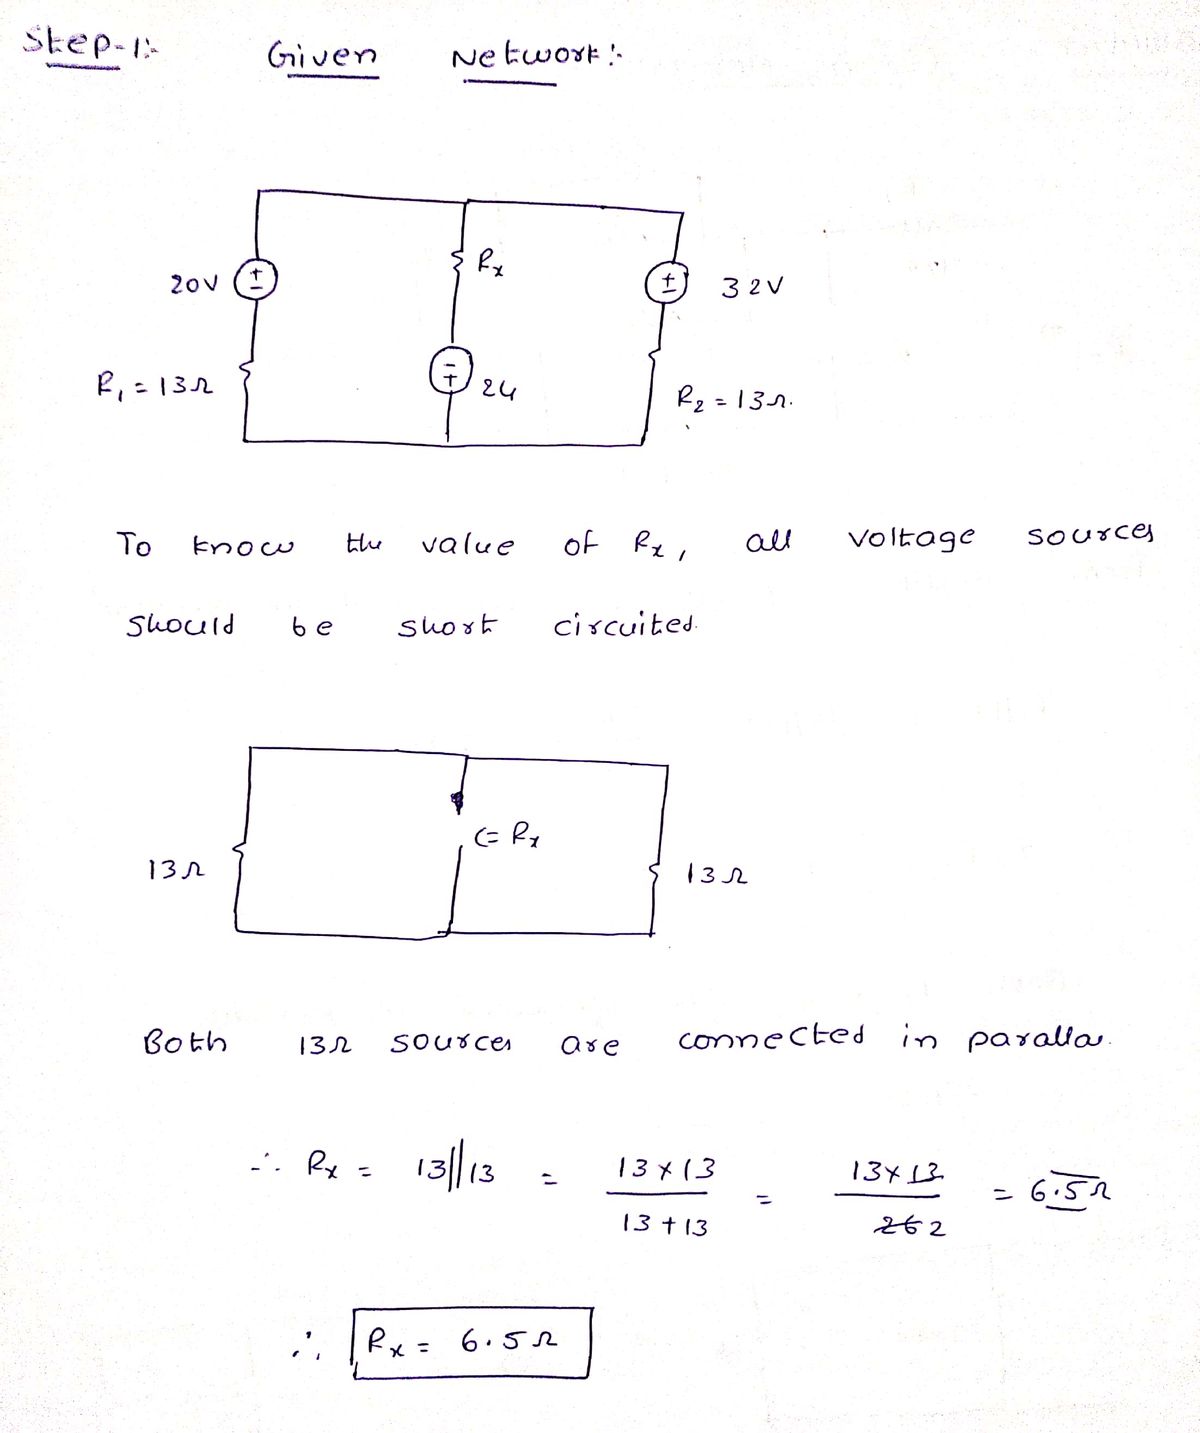 Step-1:-
Given Network:-
Rx
20V + - + - 32V
R1 = 13Ω - + 24 R2 = 13Ω.
To know the value of Rx, all voltage sources
should be short circuited.
⇐ Rx
13Ω 13Ω
Both 13Ω sources are connected in parallar.
∴ Rx = 13||13 = 13×13 / 13+13 = 13×13 / 26 2 = 6.5Ω
∴ Rx = 6.5Ω